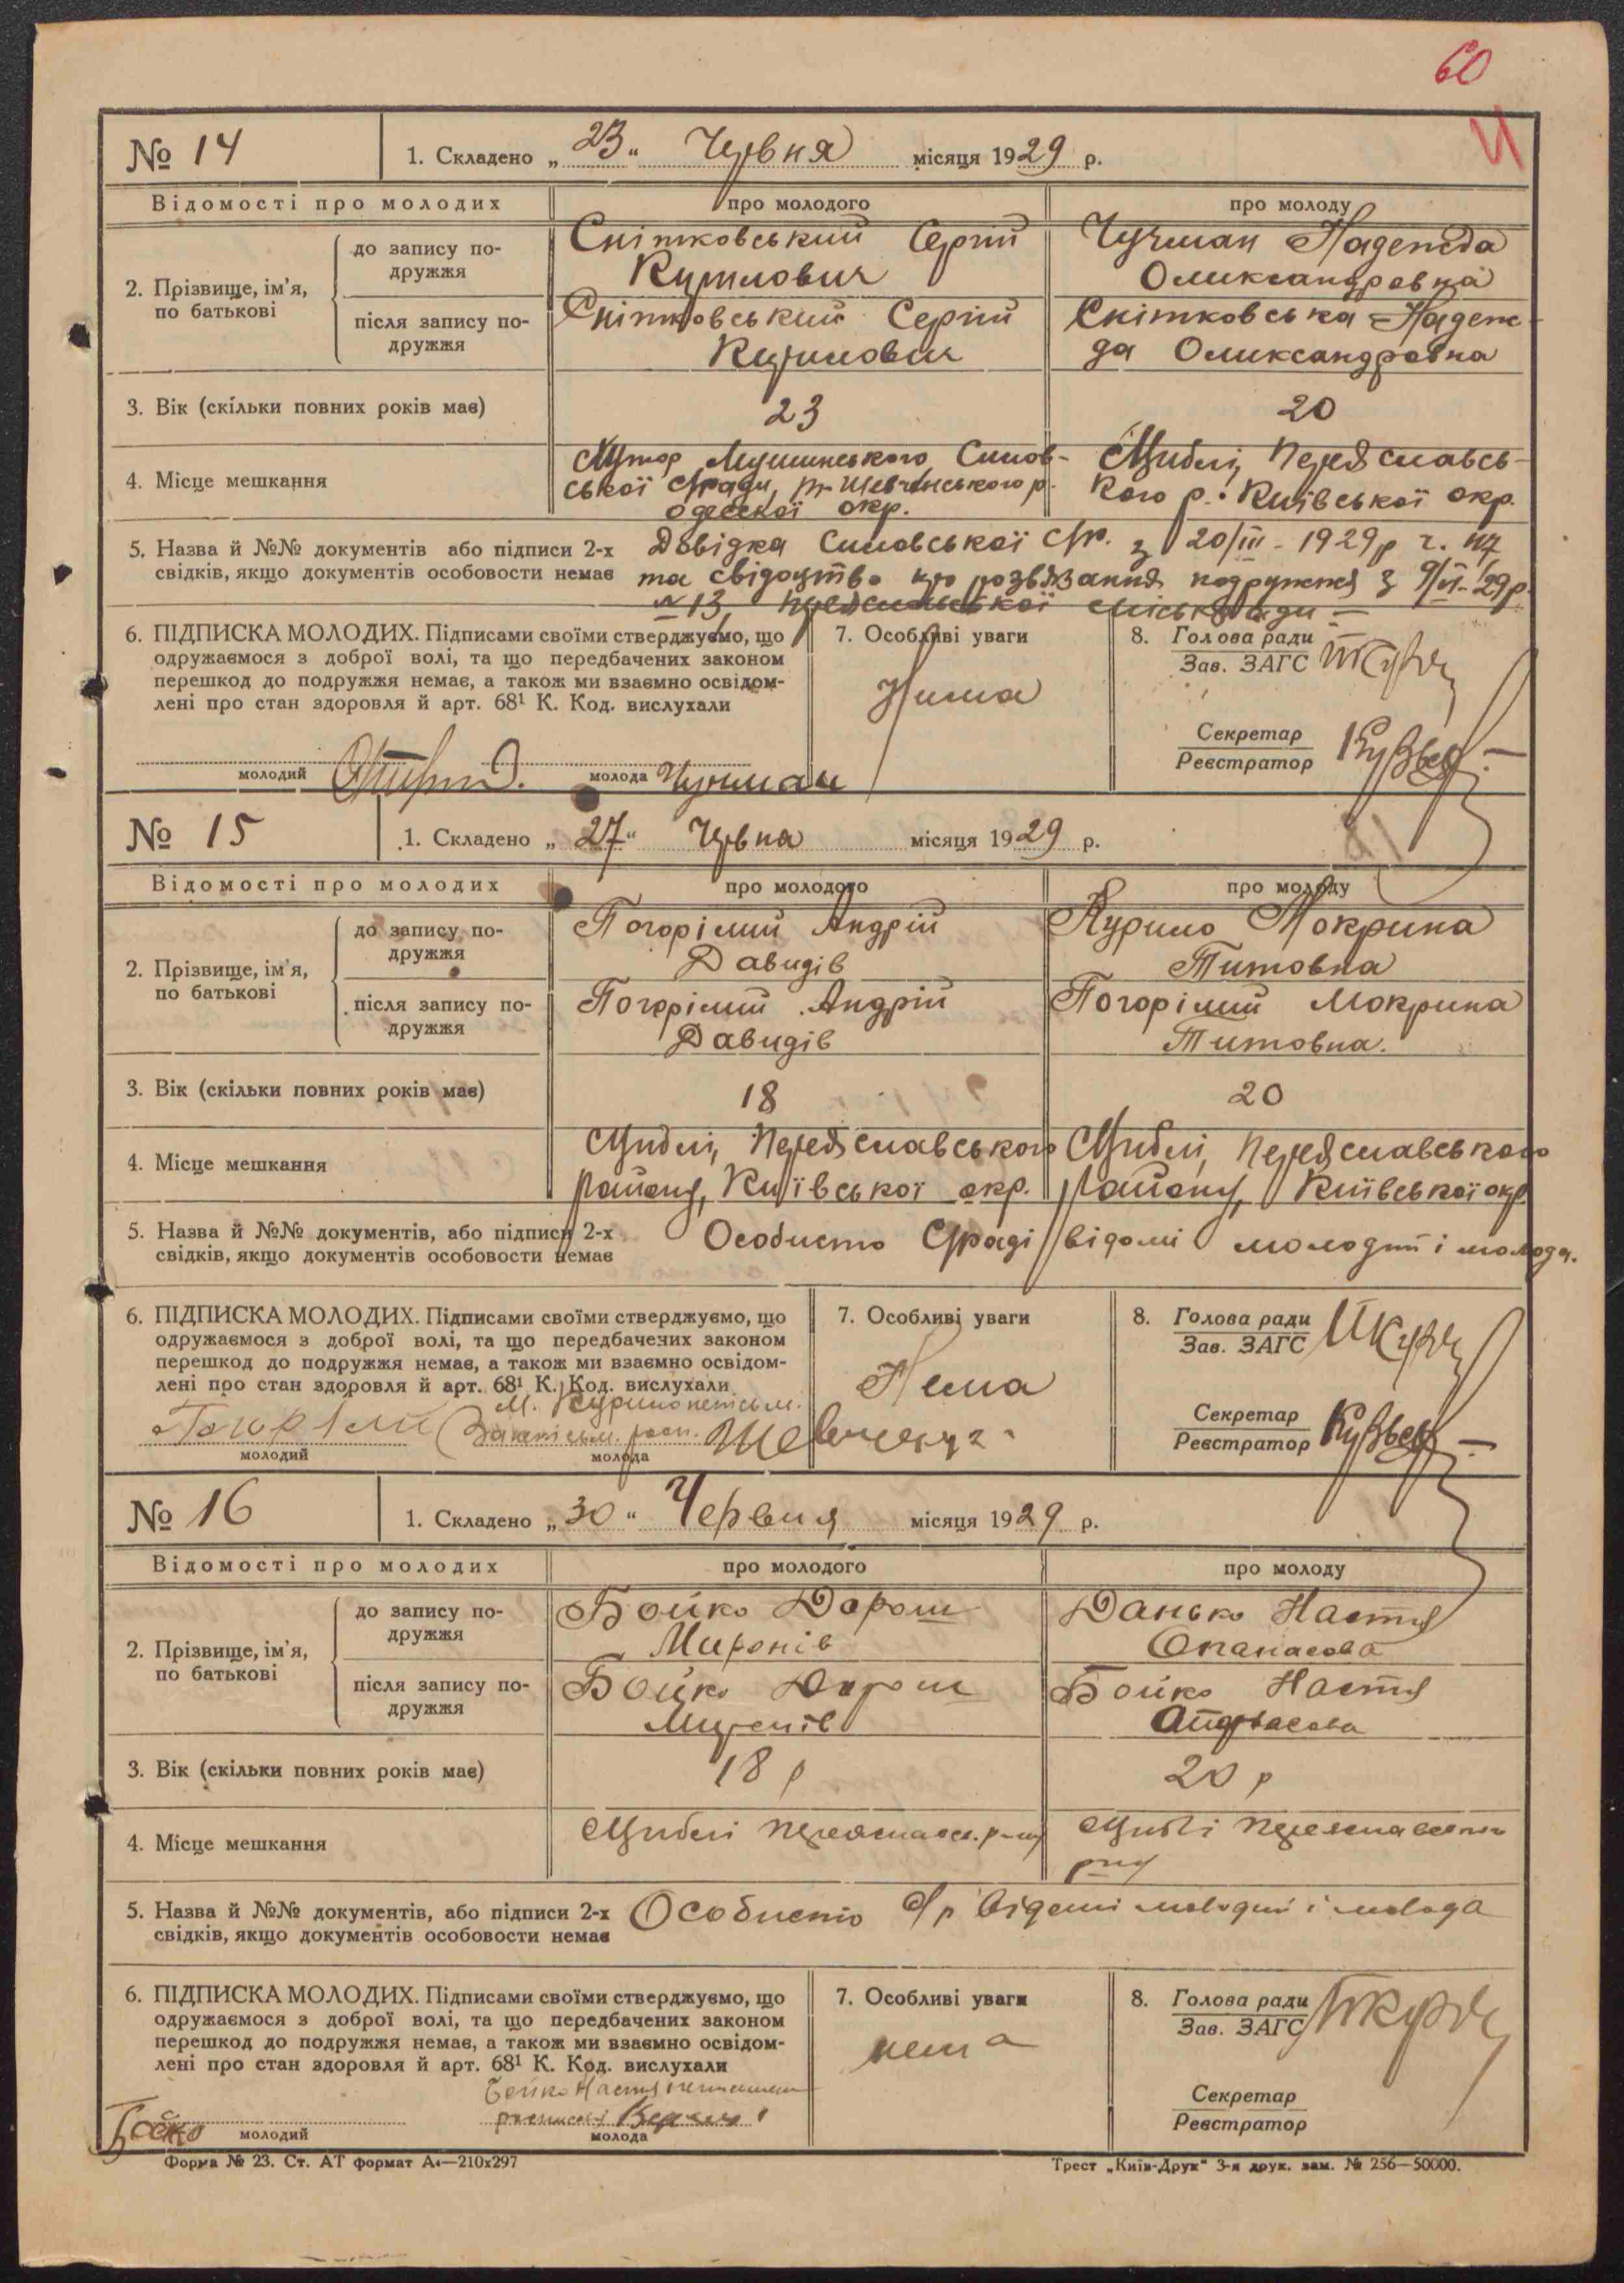 60
№ 14 1. Складено „23“ Червня місяця 1929 р.
Відомості про молодих про молодого про молоду
2. Прізвище, ім'я, по батькові
до запису подружжя
Снітковський Сергій
Кирилович
Чучман Надежда
Олександровна
після запису подружжя
Снітковський Сергій
Кирилович
Снітковська Надеж-
да Олександровна
3. Вік (скільки повних років має) 23 20
4. Місце мешкання
Хутор Синов-
ської с/ради, Шевченського р.
одеської окр.
Циблі, Переяславсь-
кого р. Київської окр.
5. Назва й №№ документів або підписи 2-х
свідків, якщо документів особовости немає
Довідка Синовської с/р. з 20/III - 1929 р ч.
та свідоцтво про розвязання подружжя з 9/VI-29 р.
№ 13, Переяславської міськради
6. ПІДПИСКА МОЛОДИХ. Підписами своїми стверджуємо, що
одружаємося з доброї волі, та що передбачених законом
перешкод до подружжя немає, а також ми взаємно освідом-
лені про стан здоровля й арт. 68¹ К. Код. вислухали
молодий молода Чучман
7. Особливі уваги
Нима
8. Голова ради
Зав. ЗАГС
Секретар
Реєстратор
№ 15 1. Складено „27“ Червня місяця 1929 р.
Відомості про молодих про молодого про молоду
2. Прізвище, ім'я, по батькові
до запису подружжя
Погорілий Андрій
Давидів
Курило Мокрина
Титовна
після запису подружжя
Погорілий Андрій
Давидів
Погорілий Мокрина
Титовна.
3. Вік (скільки повних років має) 18 20
4. Місце мешкання
Циблі, Переяславського
району, Київської окр.
Циблі, Переяславського
району, Київської окр.
5. Назва й №№ документів, або підписи 2-х
свідків, якщо документів особовости немає
Особисто С/раді відомі молодий і молода.
6. ПІДПИСКА МОЛОДИХ. Підписами своїми стверджуємо, що
одружаємося з доброї волі, та що передбачених законом
перешкод до подружжя немає, а також ми взаємно освідом-
лені про стан здоровля й арт. 68¹ К. Код. вислухали
М. Курило неписьм.
молодий молода
7. Особливі уваги
Нема
8. Голова ради
Зав. ЗАГС
Секретар
Реєстратор
№ 16 1. Складено „30“ Червня місяця 1929 р.
Відомості про молодих про молодого про молоду
2. Прізвище, ім'я, по батькові
до запису подружжя
Бойко Дорош
Миронів
Данько Настя
Опанасова
після запису подружжя
Бойко Дорош
Миронів
Бойко Настя
3. Вік (скільки повних років має) 18 р 20 р
4. Місце мешкання
Циблі Переяславс. р-ну
Циблі Переяславського
р-ну
5. Назва й №№ документів, або підписи 2-х
свідків, якщо документів особовости немає
Особисто с/р відомі молодий і молода
6. ПІДПИСКА МОЛОДИХ. Підписами своїми стверджуємо, що
одружаємося з доброї волі, та що передбачених законом
перешкод до подружжя немає, а також ми взаємно освідом-
лені про стан здоровля й арт. 68¹ К. Код. вислухали
Бойко Настя
Бойко молодий молода
7. Особливі уваги
нема
8. Голова ради
Зав. ЗАГС
Секретар
Реєстратор
Форма № 23. Ст. АТ формат А₄—210х297
Трест „Київ-Друк“ 3-я друк. зам. № 256—50000.